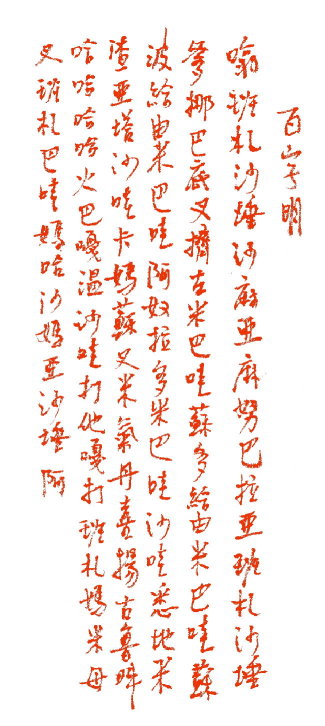 百字明
嗡班札沙埵沙麻亞麻努巴拉亞班札沙埵
爹挪巴底叉擠左米巴哇蘇多給由米巴哇蘇
波給由米巴哇阿奴拉多米巴哇沙哇悉地米
渣亞塔沙哇卡媽蘇叉米氣丹喜揚古魯吽
哈哈哈哈火巴嘎溫沙哇打他嘎打班札媽米母
叉班札巴哇媽哈沙媽亞沙埵阿